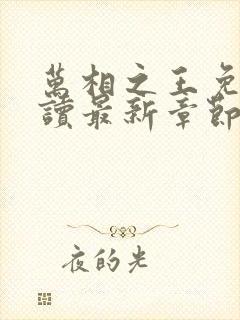 萬相之王免
讀最新章節
夜的光